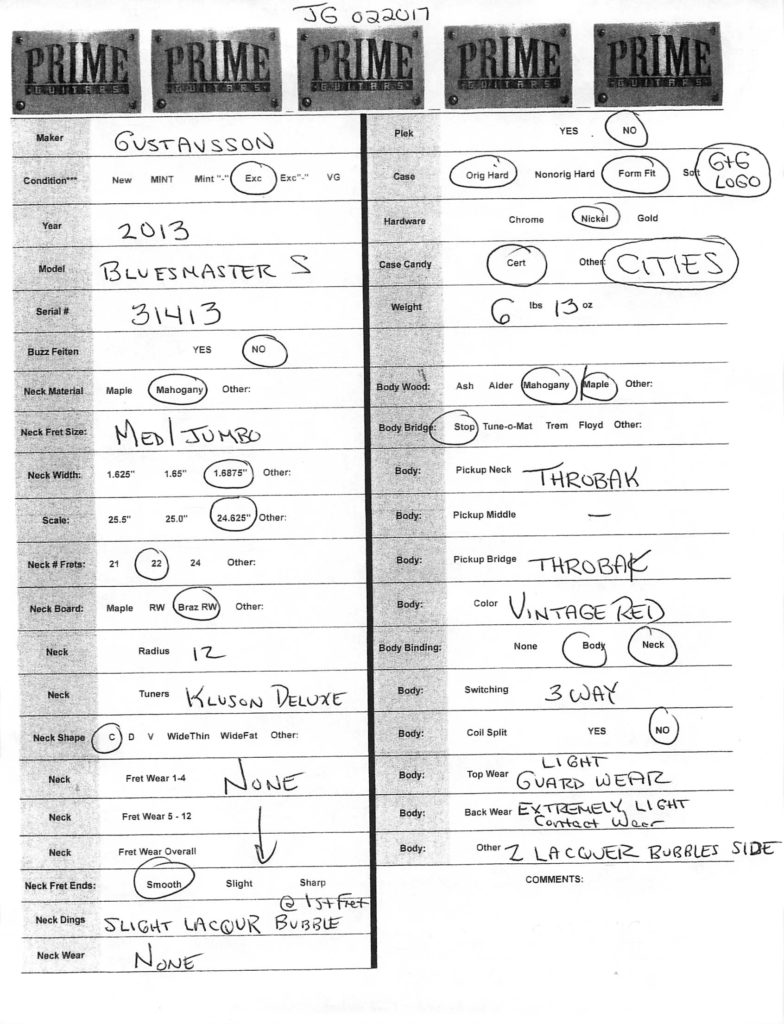 JG 022017
PRIME GUITARS PRIME GUITARS PRIME GUITARS PRIME GUITARS PRIME GUITARS
Maker GUSTAVSSON
Condition*** New MINT Mint "-" Exc Exc"-" VG
Year 2013
Model BLUESMASTER S
Serial # 31413
Buzz Feiten YES NO
Neck Material Maple Mahogany Other:
Neck Fret Size: MED/JUMBO
Neck Width: 1.625" 1.65" 1.6875" Other:
Scale: 25.5" 25.0" 24.625" Other:
Neck # Frets: 21 22 24 Other:
Neck Board: Maple RW Braz RW Other:
Neck Radius 12
Neck Tuners KLUSON DELUXE
Neck Shape C D V WideThin WideFat Other:
Neck Fret Wear 1-4 NONE
Neck Fret Wear 5 - 12
Neck Fret Wear Overall
Neck Fret Ends: Smooth Slight Sharp
@ 1st Fret
Neck Dings SLIGHT LACQUR BUBBLE
Neck Wear NONE
Plek YES NO
Case Orig Hard Nonorig Hard Form Fit Soft G+G
LOGO
Hardware Chrome Nickel Gold
Case Candy Cert Other CITIES
Weight 6 lbs 13 oz
Body Wood: Ash Alder Mahogany Maple Other:
Body Bridge: Stop Tune-o-Mat Trem Floyd Other:
Body: Pickup Neck THROBAK
Body: Pickup Middle —
Body: Pickup Bridge THROBAK
Body: Color VINTAGE RED
Body Binding: None Body Neck
Body: Switching 3 WAY
Body: Coil Split YES NO
LIGHT
Body: Top Wear GUARD WEAR
Body: Back Wear EXTREMELY LIGHT
Contact Wear
Body: Other 2 LACQUER BUBBLES SIDE
COMMENTS: